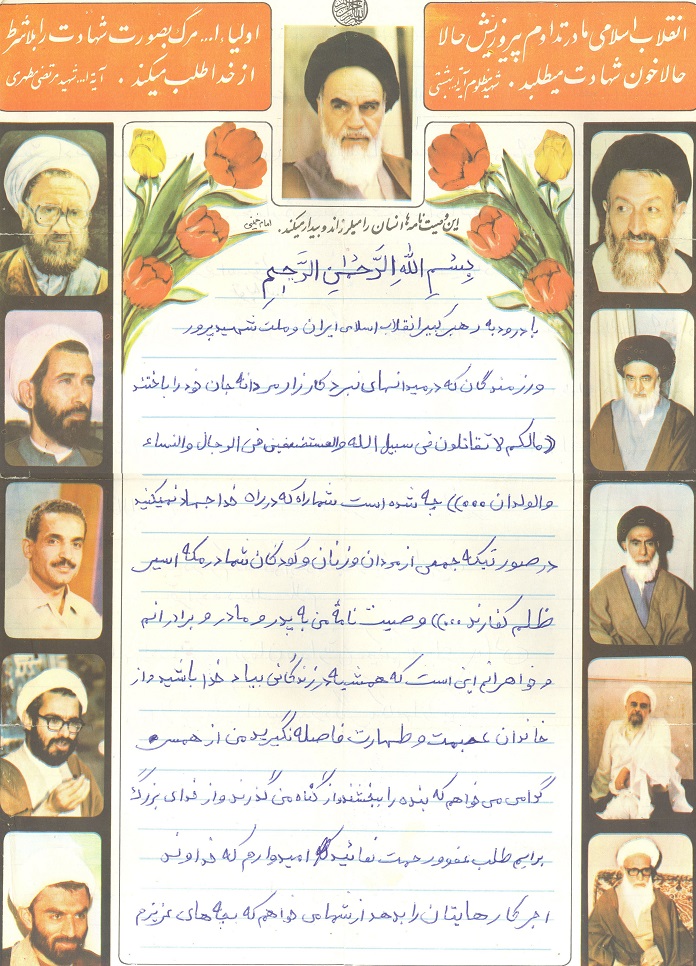 انقلاب اسلامی ما در تداوم پیروزیش حالا
حالا خون شهادت میطلبد. شهید مظلوم آیة... بهشتی
اولیاء ا... مرگ بصورت شهادت را بلاشرط
از خدا طلب میکند. آیة ا... شهید مرتضی مطهری
این وصیت نامه ها انسان را میلرزاند و بیدار میکند. امام خمینی
بِسْمِ اللهِ الرَّحْمٰنِ الرَّحِیمِ
با درود به رهبر کبیر انقلاب اسلامی ایران و ملت شهید پرور
ورزمندگان که در میدانهای نبرد کارزار مردانه جان خود را باختند
((مالکم لا تقاتلون فی سبیل الله والمستضعفین فی الرجال والنساء
والولدان ...)) چه شده است شما را که در راه خدا جهاد نمیکنید
در صورتیکه جمعی از مردان و زنان و کودکان شما در مکه اسیر
ظلم کفارند ...)) وصیت نامهٔ من به پدر و مادر و برادرانم
و خواهرانم این است که همیشه در زندگانی بیاد خدا باشید و از
خاندان عصمت و طهارت فاصله نگیرید من از همسر
گرامی می خواهم که بنده را ببخشند و از گناه من گذرند و از خدای بزرگ
برایم طلب عفو و رحمت نمائید امیدوارم که خداوند
اجر کارهایتان را بدهد از شما می خواهم که بچه های عزیزم